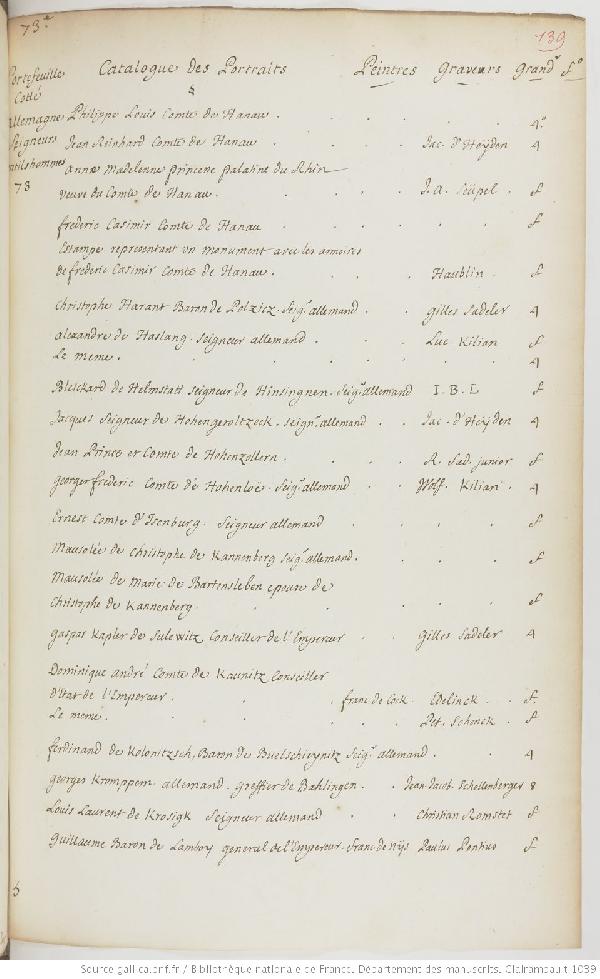 73.e
139
Portefeuille
Cotté
allemagne
Seigneurs
73
Catalogue des Portraits Peintres Graveurs Grandr fo
Philippe Louis Comte de Hanau . . . . 4o
Jean Reinhard Comte de Hanau . . . Jac. d'Heyden 4
anne Madelenne princesse palatine du Rhin
veuve du Comte de Hanau . . . J. a. Seüpel . f
frederic Casimir Comte de Hanau . . . . f
Estampe representant un monument avec les armoires
de frederic Casimir Comte de Hanau . . . Haüblin . f
Christophe Harant Baron de Polzicz. Seigr. allemand . . gilles Sadeler 4
alexandre de Haslang. Seigneur allemand . . Luc Kilian f
Le meme . . . . . . 4
Bleickard de Helmstatt seigneur de Hinsingnen. Seigr. allemand I. B. L f
Jacques Seigneur de Hohengeroltzeck. seignr. allemand . . Jac. d'Heyden 4
Jean Prince et Comte de Hohenzollern . . . R. Sad. junior f
george frederic Comte de Hohenloë. Seigr. allemand . . Wolf. Kilian . 4
Ernest Comte d'Isenburg. Seigneur allemand . . . . f
Mausolée de Christophe de Kannenberg seigr. allemand . . . . f
Mausolée de Marie de Bartensleben epouse de
Christophe de Kannenberg . . . . . f
gaspar Kapler de Sulewitz Conseiller de l'Empereur . . Gilles Sadeler 4
Dominique andré Comte de Kaunitz Conseiller
d'Etat de l'Empereur . . franc. de Cock. Edelinck . f.
Le meme . . . . . Pet. Schenck . f
ferdinand de Kolonitzsch, Baron de Seigr. allemand . 4
georges Kromppein allemand. greffier de Bahlingen . . Jean Jacob Schellenberger 8
Louis Laurent de Krosigk Seigneur allemand . . Christian Romstet f
guillaume Baron de Lamboy general de l'Empereur. franc. de nijs Paulus Pontius f
Source gallica.bnf.fr / Bibliothèque nationale de France. Département des manuscrits. Clairambault 1039